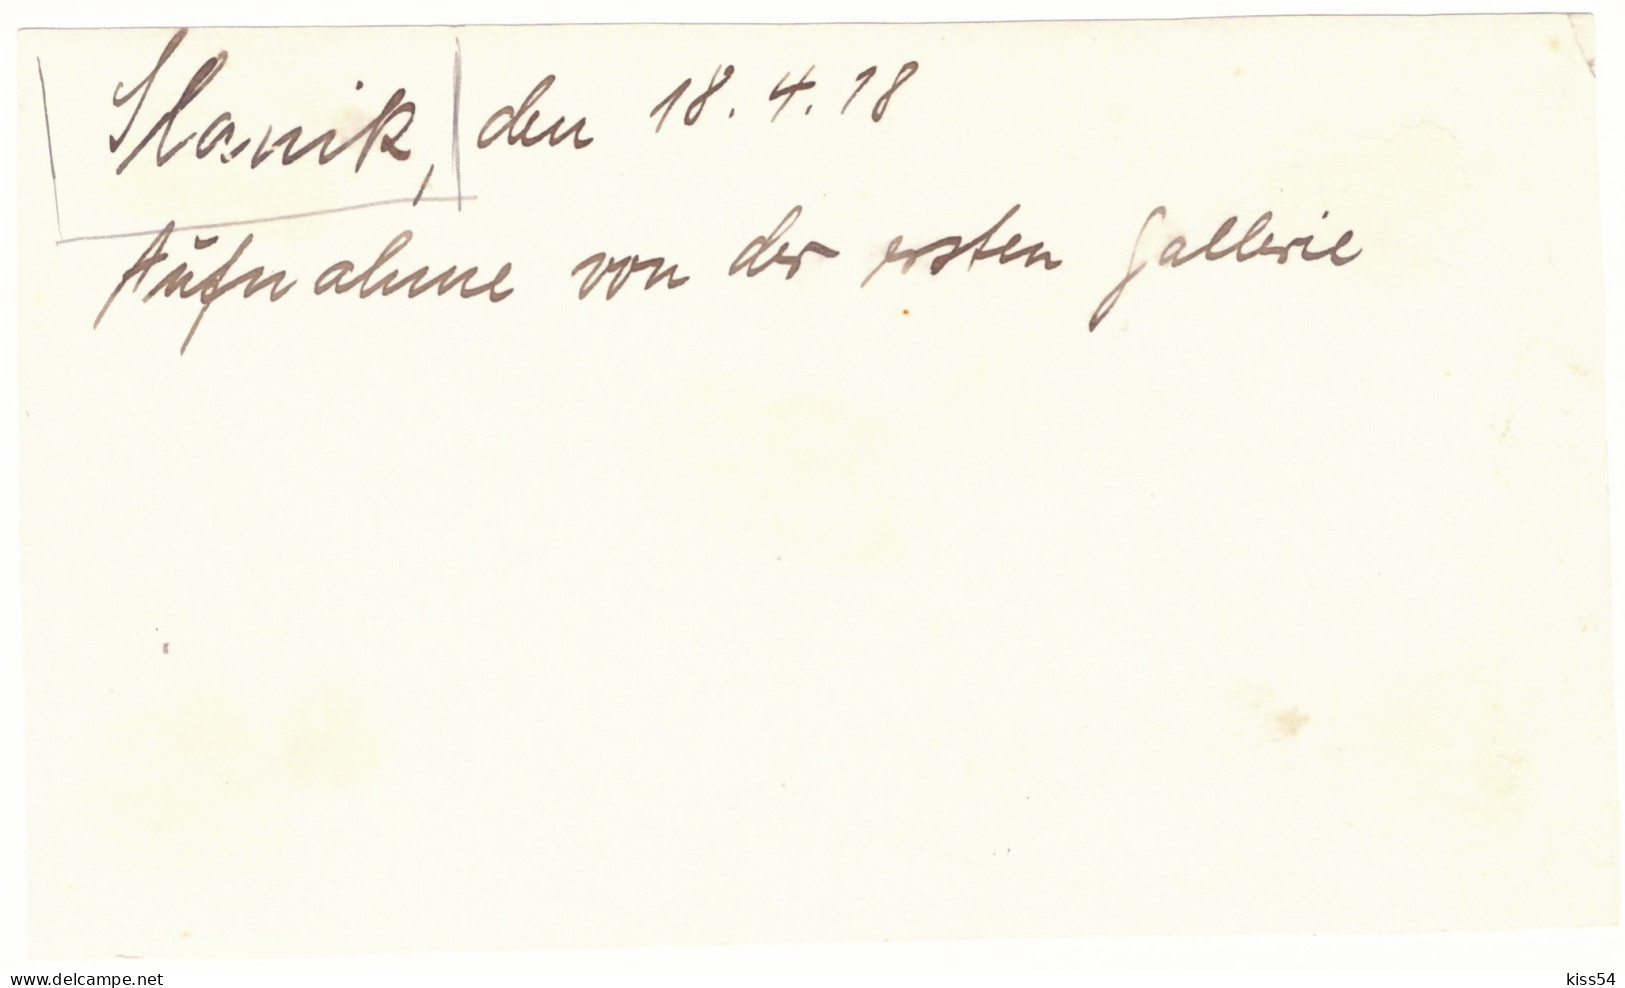 Slanik, den 18.4.18
Aufnahme von der ersten Gallerie
www.delcampe.net
kiss54